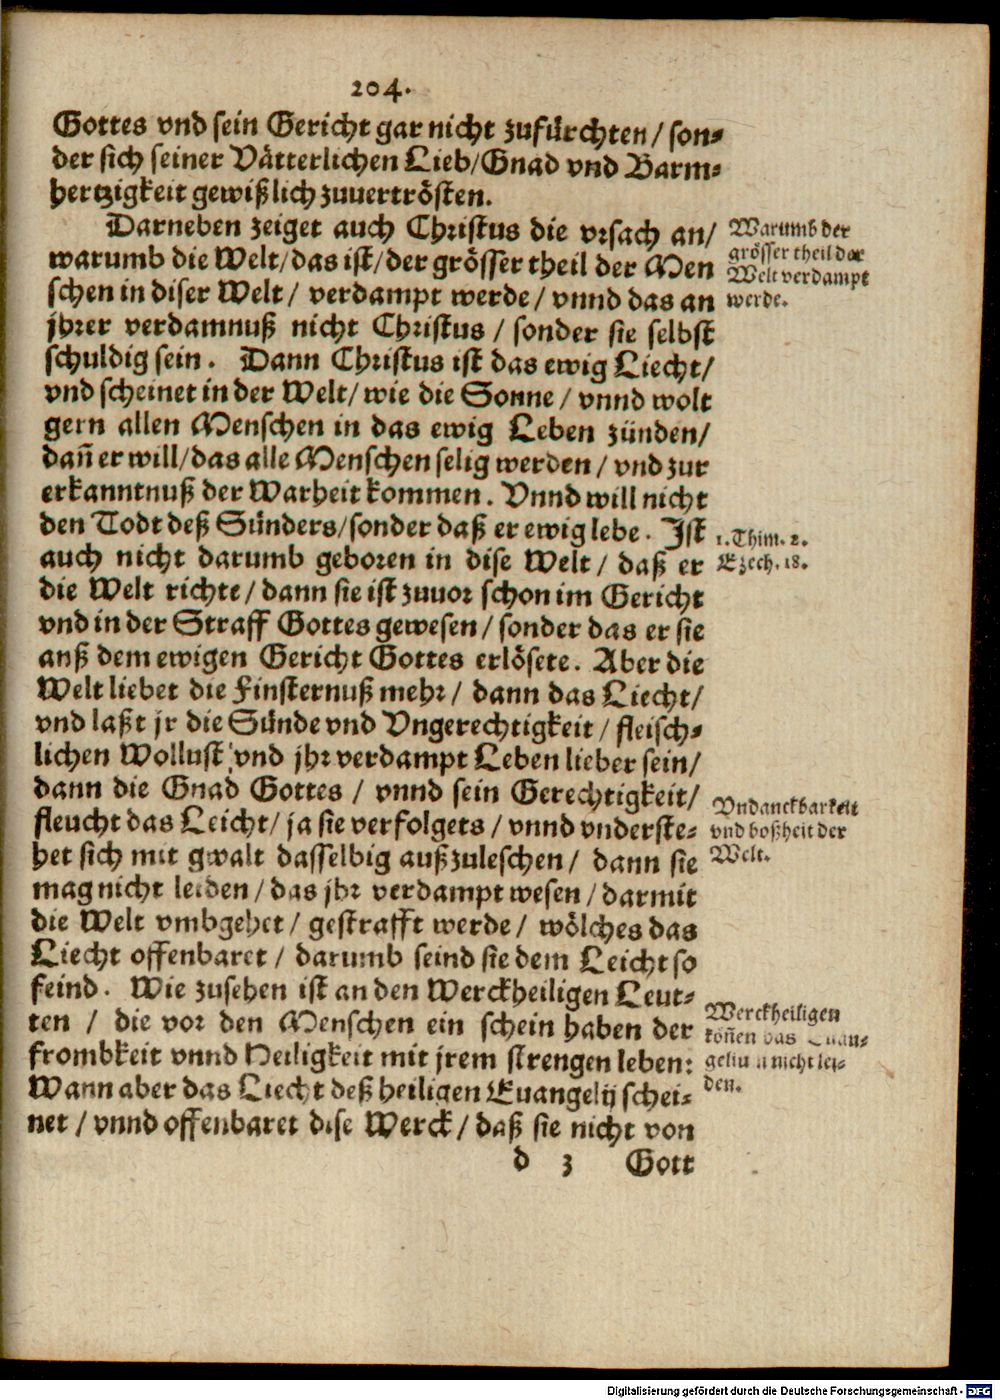 204.
Gottes vnd sein Gericht gar nicht zufürchten/ son-
der sich seiner Vätterlichen Lieb/Gnad vnd Barm-
hertzigkeit gewißlich zuuertrösten.
Darneben zeiget auch Christus die vrsach an/
warumb die Welt/das ist/der grösser theil der Men
schen in diser Welt/ verdampt werde/ vnnd das an
jhrer verdamnuß nicht Christus/ sonder sie selbst
schuldig sein. Dann Christus ist das ewig Liecht/
vnd scheinet in der Welt/ wie die Sonne/ vnnd wolt
gern allen Menschen in das ewig Leben zünden/
dañ er will/das alle Menschen selig werden/ vnd zur
erkanntnuß der Warheit kommen. Vnnd will nicht
den Todt deß Sünders/sonder daß er ewig lebe. Ist
auch nicht darumb geboren in dise Welt/ daß er
die Welt richte/ dann sie ist zuuor schon im Gericht
vnd in der Straff Gottes gewesen/ sonder das er sie
anß dem ewigen Gericht Gottes erlösete. Aber die
Welt liebet die Finsternuß mehr/ dann das Liecht/
vnd laßt jr die Sünde vnd Vngerechtigkeit/ fleisch-
lichen Wollust vnd jhr verdampt Leben lieber sein/
dann die Gnad Gottes/ vnnd sein Gerechtigkeit/
fleucht das Leicht/ ja sie verfolgets/ vnnd vnderste-
het sich mit gwalt dasselbig außzuleschen/ dann sie
mag nicht leiden/ das jhr verdampt wesen/ darmit
die Welt vmbgehet/ gestrafft werde/ wölches das
Liecht offenbaret/ darumb seind sie dem Leicht so
feind. Wie zusehen ist an den Werckheiligen Leut-
ten/ die vor den Menschen ein schein haben der
frombkeit vnnd Heiligkeit mit jrem strengen leben:
Wann aber das Liecht deß heiligen Euangelij schei-
net/ vnnd offenbaret dise Werck/ daß sie nicht von
d 3 Gott
Warumb der
grösser theil der
Welt verdampt
werde.
1. Thim. 2.
Ezech. 18.
Vndanckbarkeit
vnd boßheit der
Welt.
Werckheiligen
köñen das Euan-
geliu n nicht lei-
den.
Digitalisierung gefördert durch die Deutsche Forschungsgemeinschaft - DFG